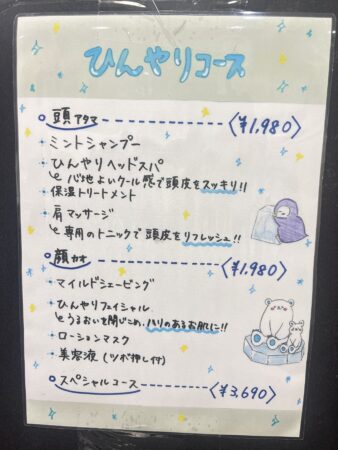 ひんやりコース
頭 アタマ 〈¥1,980〉
ミントシャンプー
ひんやりヘッドスパ
心地よいクール感で頭皮をスッキリ!!
保湿トリートメント
肩マッサージ
専用のトニックで頭皮をリフレッシュ!!
顔 カオ 〈¥1,980〉
マイルドシェービング
ひんやりフェイシャル
うるおいを閉じこめ、ハリのあるお肌に!!
ローションマスク
美容液(ツボ押し付)
スペシャルコース 〈¥3,690〉